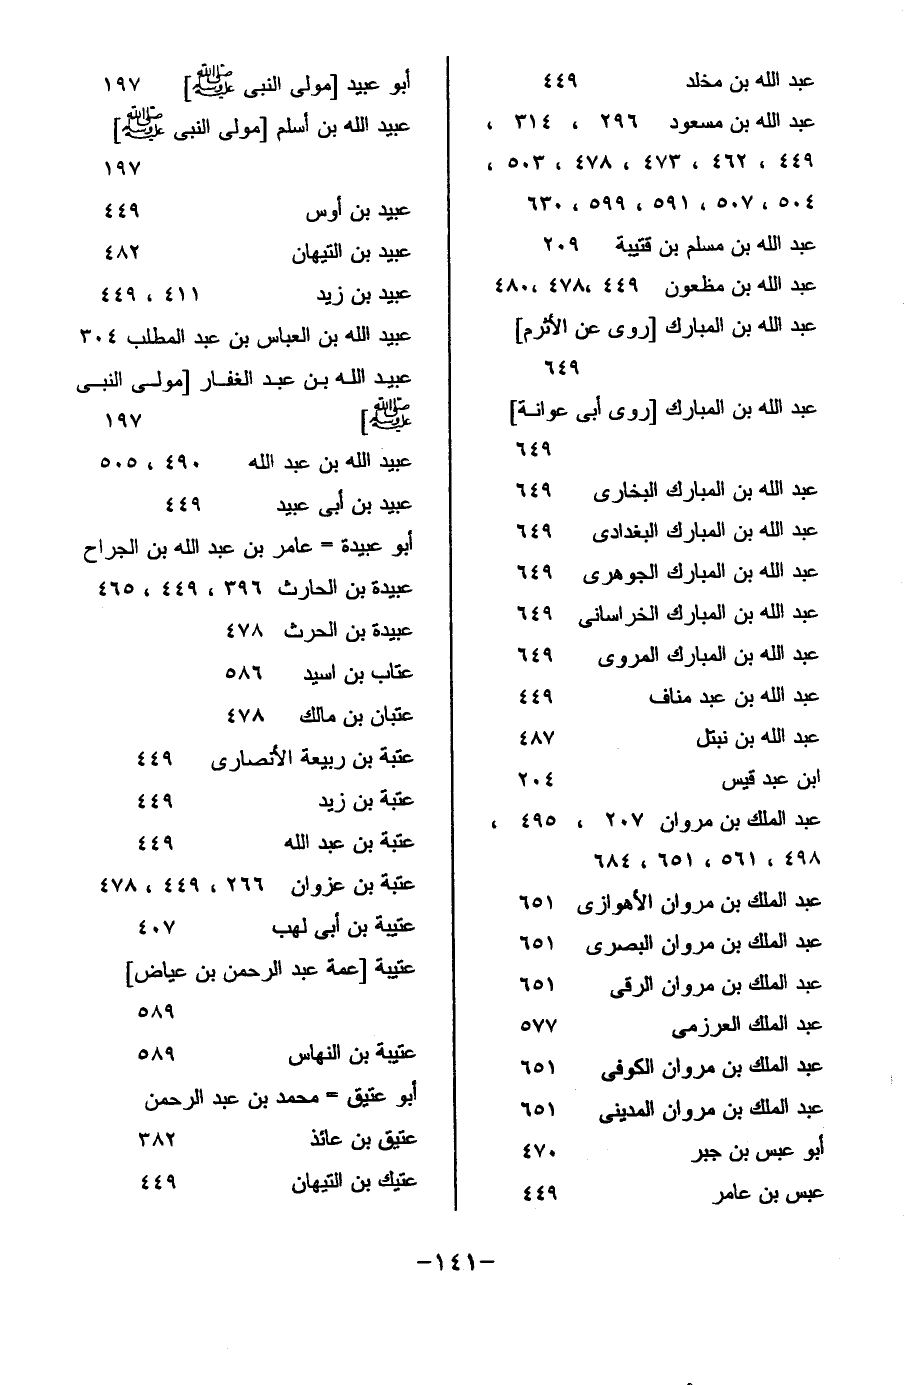 عبد الله بن مخلد ٤٤٩
عبد الله بن مسعود ٢٩٦ ، ٣١٤ ،
٤٤٩ ، ٤٦٢ ، ٤٧٣ ، ٤٧٨ ، ٥٠٣ ،
٥٠٤ ، ٥٠٧ ، ٥٩١ ، ٥٩٩ ، ٦٣٠
عبد الله بن مسلم بن قتيبة ٢٠٩
عبد الله بن مظعون ٤٤٩ ،٤٧٨ ،٤٨٠
عبد الله بن المبارك [روى عن الأثرم]
٦٤٩
عبد الله بن المبارك [روى أبى عوانة]
٦٤٩
عبد الله بن المبارك البخارى ٦٤٩
عبد الله بن المبارك البغدادى ٦٤٩
عبد الله بن المبارك الجوهرى ٦٤٩
عبد الله بن المبارك الخراسانى ٦٤٩
عبد الله بن المبارك المروى ٦٤٩
عبد الله بن عبد مناف ٤٤٩
عبد الله بن نبتل ٤٨٧
ابن عبد قيس ٢٠٤
عبد الملك بن مروان ٢٠٧ ، ٤٩٥ ،
٤٩٨ ، ٥٦١ ، ٦٥١ ، ٦٨٤
عبد الملك بن مروان الأهوازى ٦٥١
عبد الملك بن مروان البصرى ٦٥١
عبد الملك بن مروان الرقى ٦٥١
عبد الملك العرزمى ٥٧٧
عبد الملك بن مروان الكوفى ٦٥١
عبد الملك بن مروان المدينى ٦٥١
أبو عبس بن جبر ٤٧٠
عبس بن عامر ٤٤٩
أبو عبيد [مولى النبى ﷺ] ١٩٧
عبيد الله بن أسلم [مولى النبى ﷺ]
١٩٧
عبيد بن أوس ٤٤٩
عبيد بن التيهان ٤٨٢
عبيد بن زيد ٤١١ ، ٤٤٩
عبيد الله بن العباس بن عبد المطلب ٣٠٤
عبيد الله بن عبد الغفار [مولى النبى
ﷺ] ١٩٧
عبيد الله بن عبد الله ٤٩٠ ، ٥٠٥
عبيد بن أبى عبيد ٤٤٩
أبو عبيدة = عامر بن عبد الله بن الجراح
عبيدة بن الحارث ٣٩٦ ، ٤٤٩ ، ٤٦٥
عبيدة بن الحرث ٤٧٨
عتاب بن اسيد ٥٨٦
عتبان بن مالك ٤٧٨
عتبة بن ربيعة الأنصارى ٤٤٩
عتبة بن زيد ٤٤٩
عتبة بن عبد الله ٤٤٩
عتبة بن عزوان ٢٦٦ ، ٤٤٩ ، ٤٧٨
عتيبة بن أبى لهب ٤٠٧
عتيبة [عمة عبد الرحمن بن عياض]
٥٨٩
عتيبة بن النهاس ٥٨٩
أبو عتيق = محمد بن عبد الرحمن
عتيق بن عائذ ٣٨٢
عتيك بن التيهان ٤٤٩
-١٤١-